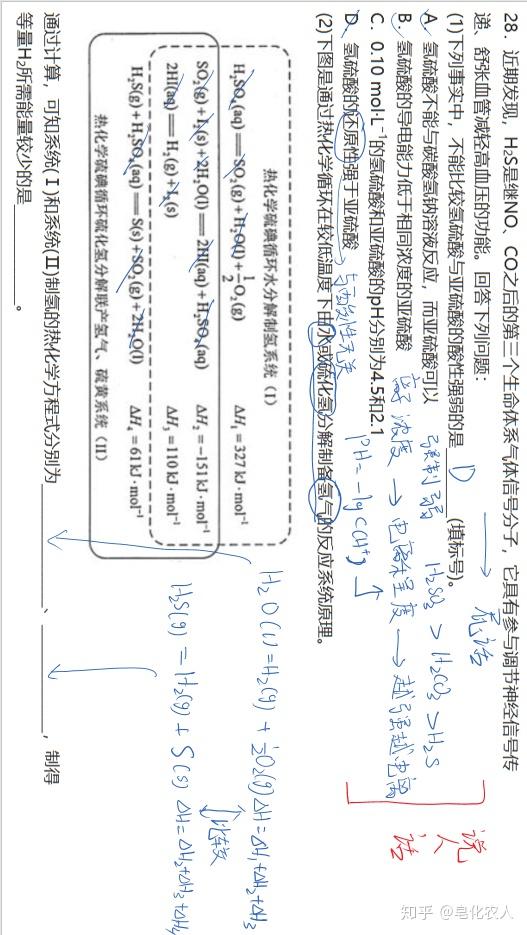 28. 近期发现，H₂S是继NO、CO之后的第三个生命体系气体信号分子，它具有参与调节神经信号传
递、舒张血管减轻高血压的功能。回答下列问题：
→ 屁话
(1)下列事实中，不能比较氢硫酸与亚硫酸的酸性强弱的是 D (填标号)。
A. 氢硫酸不能与碳酸氢钠溶液反应，而亚硫酸可以
强制弱 H₂SO₃ > H₂CO₃ > H₂S
B. 氢硫酸的导电能力低于相同浓度的亚硫酸
离子浓度 → 电离程度 → 越强越电离
C. 0.10 mol·L⁻¹的氢硫酸和亚硫酸的pH分别为4.5和2.1
pH=-lg C(H⁺) ↑
D. 氢硫酸的还原性强于亚硫酸
与酸性无关
说人话
(2)下图是通过热化学循环在较低温度下由水或硫化氢分解制备氢气的反应系统原理。
热化学硫碘循环水分解制氢系统（I）
H₂SO₄(aq)══SO₂(g)+H₂O(l)+½O₂(g) ΔH₁=327 kJ·mol⁻¹
SO₂(g)+I₂(s)+2H₂O(l)══2HI(aq)+H₂SO₄(aq) ΔH₂=−151 kJ·mol⁻¹
2HI(aq)══H₂(g)+I₂(s) ΔH₃=110 kJ·mol⁻¹
H₂S(g)+H₂SO₄(aq)══S(s)+SO₂(g)+2H₂O(l) ΔH₄=61 kJ·mol⁻¹
热化学硫碘循环硫化氢分解联产氢气、硫黄系统（II）
H₂O(l)=H₂(g)+½O₂(g) ΔH=ΔH₁+ΔH₂+ΔH₃
H₂S(g)=H₂(g)+S(s) ΔH=ΔH₂+ΔH₃+ΔH₄
通过计算，可知系统(Ⅰ)和系统(Ⅱ)制氢的热化学方程式分别为________、________，制得
等量H₂所需能量较少的是________。
知乎 @皂化农人